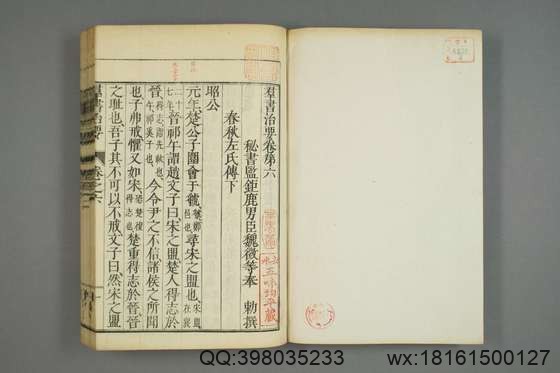 羣書治要卷第六
秘書監鉅鹿男臣魏徵等奉 勅撰
春秋左氏傳下
昭公
元年楚公子圍會于虢尋宋之盟也
晉祁午謂趙文子曰宋之盟楚人得志於
晉今令尹之不信諸侯之所聞
也子弗戒懼又如宋楚重得志於晉晉
之恥也吾子其不可以不戒文子曰然宋之盟
羣書治要 卷之六
QQ:398035233
wx:18161500127